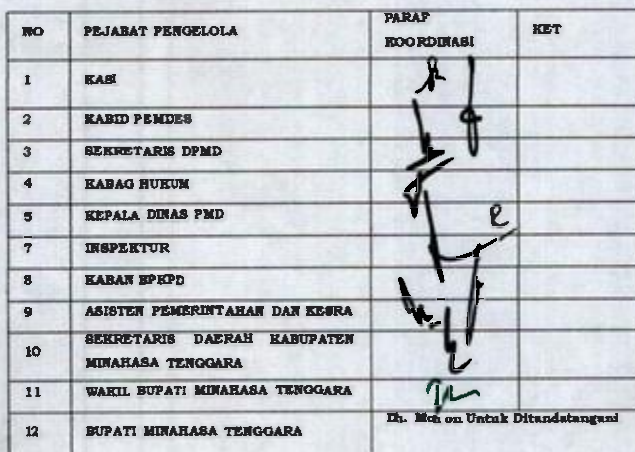 NO PEJABAT PENGELOLA PARAF KOORDINASI KET
1 KASI
2 KABID PEMDES
3 SEKRETARIS DPMD
4 KABAG HUKUM
5 KEPALA DINAS PMD
7 INSPEKTUR
8 KABAN BPKPD
9 ASISTEN PEMERINTAHAN DAN KESRA
10 SEKRETARIS DAERAH KABUPATEN
MINAHASA TENGGARA
11 WAKIL BUPATI MINAHASA TENGGARA
12 BUPATI MINAHASA TENGGARA Dh. Mohon Untuk Ditandatangani